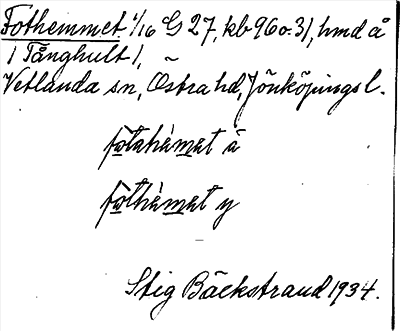 Fothemmet 1/16 G 27, kb 96 o. 31, hmd å
1 Tånghult 1,
Vetlanda sn, Östra hd, Jönköpings l.
fotahemet ä
fothemet y
Stig Bäckstrand 1934.